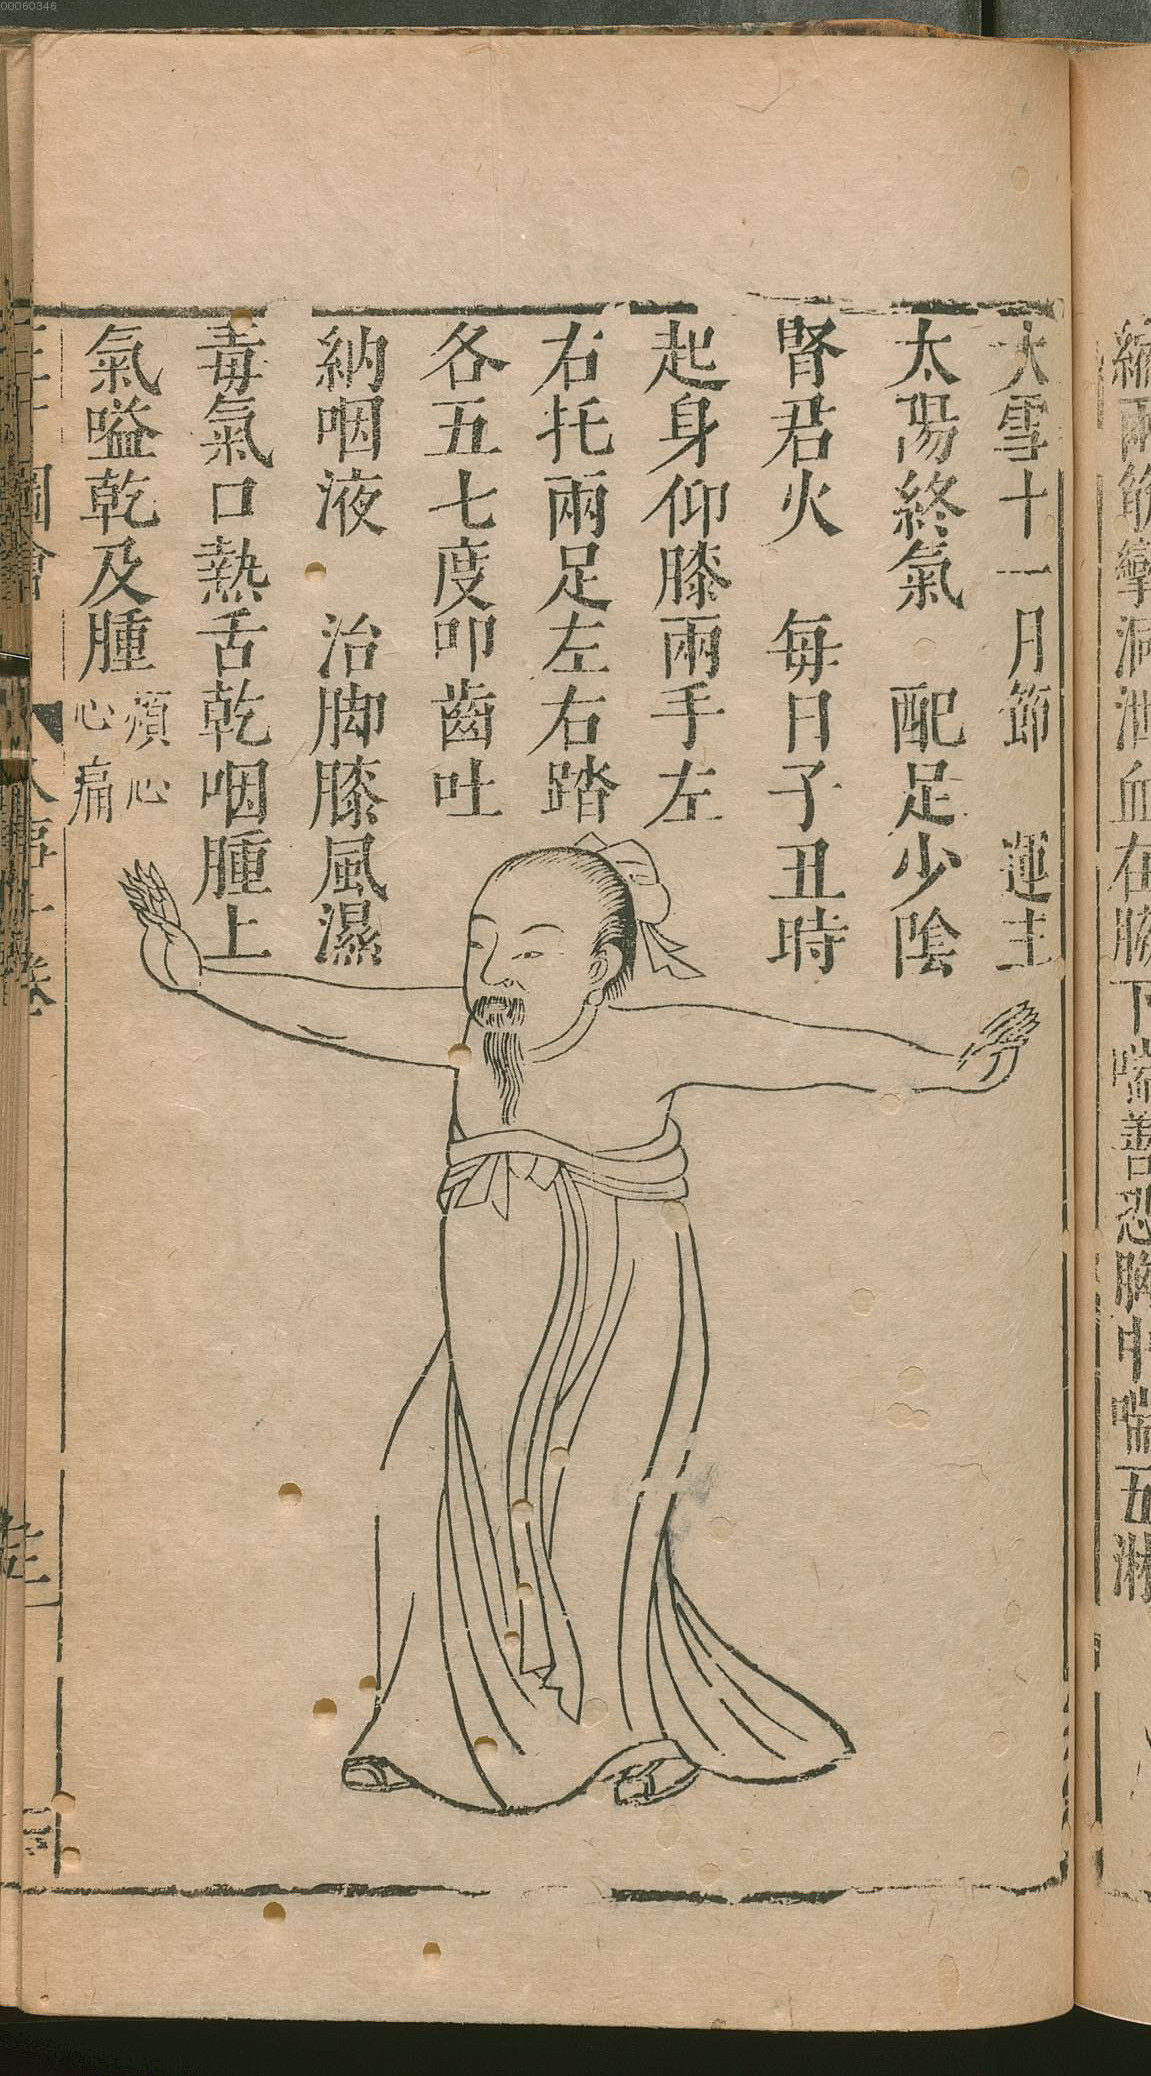 大雪十一月節　運主
太陽終氣　配足少陰
腎君火　每日子丑時
起身仰膝兩手左
右托兩足左右踏
各五七度叩齒吐
納咽液　治脚膝風濕
毒氣口熱舌乾咽腫上
氣嗌乾及腫煩心
心痛
00060346